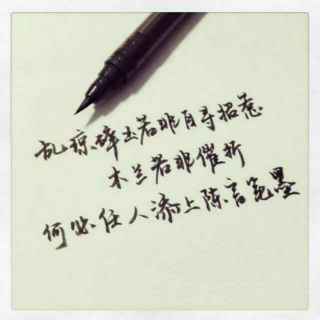 乱琼碎玉若非自寻招惹
木兰若非催折
何必任人添上陈言笔墨